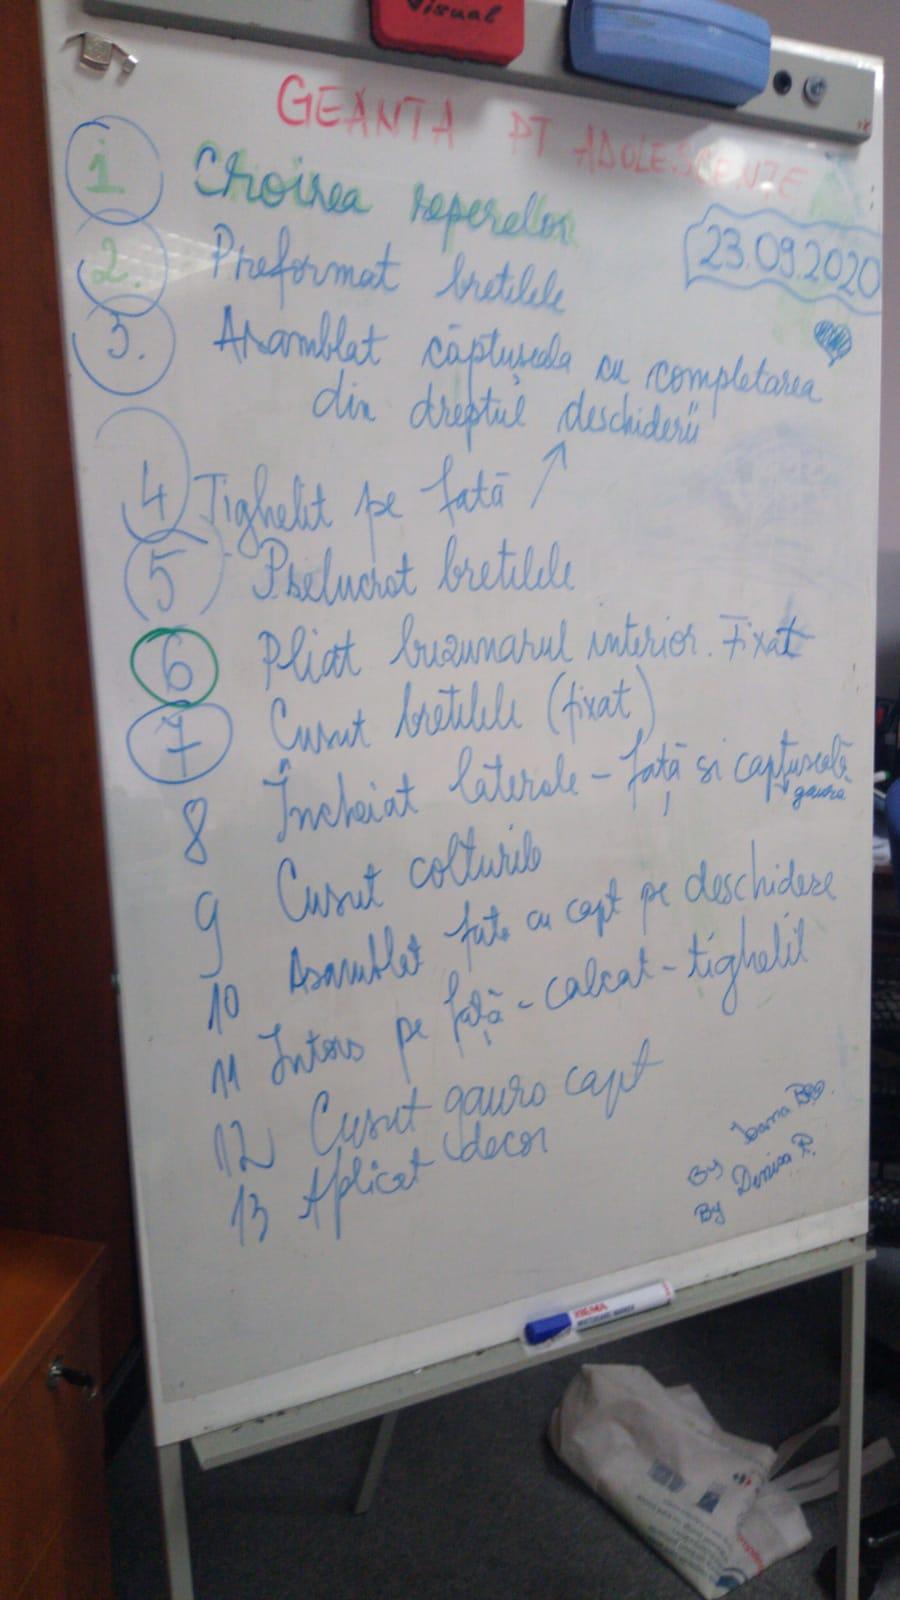 Visual
GEANTA PT ADOLESCENTE
1 Croirea reperelor
23.09.2020
2. Preformat bretelele
3. Asamblat căptușeala cu completarea
din dreptul deschiderii
4 Tighelit pe fată
5 Prelucrat bretelele
6 Pliat buzunarul interior. Fixat
7 Cusut bretelele (fixat)
8 Încheiat laterale - față si captuseală
gaura
9 Cusut colturile
10 Asamblat fata cu capt pe deschidere
11 Intors pe față - calcat - tighelit
12 Cusut gaura capt
13 Aplicat decor
By Ioana
By Denisa R.